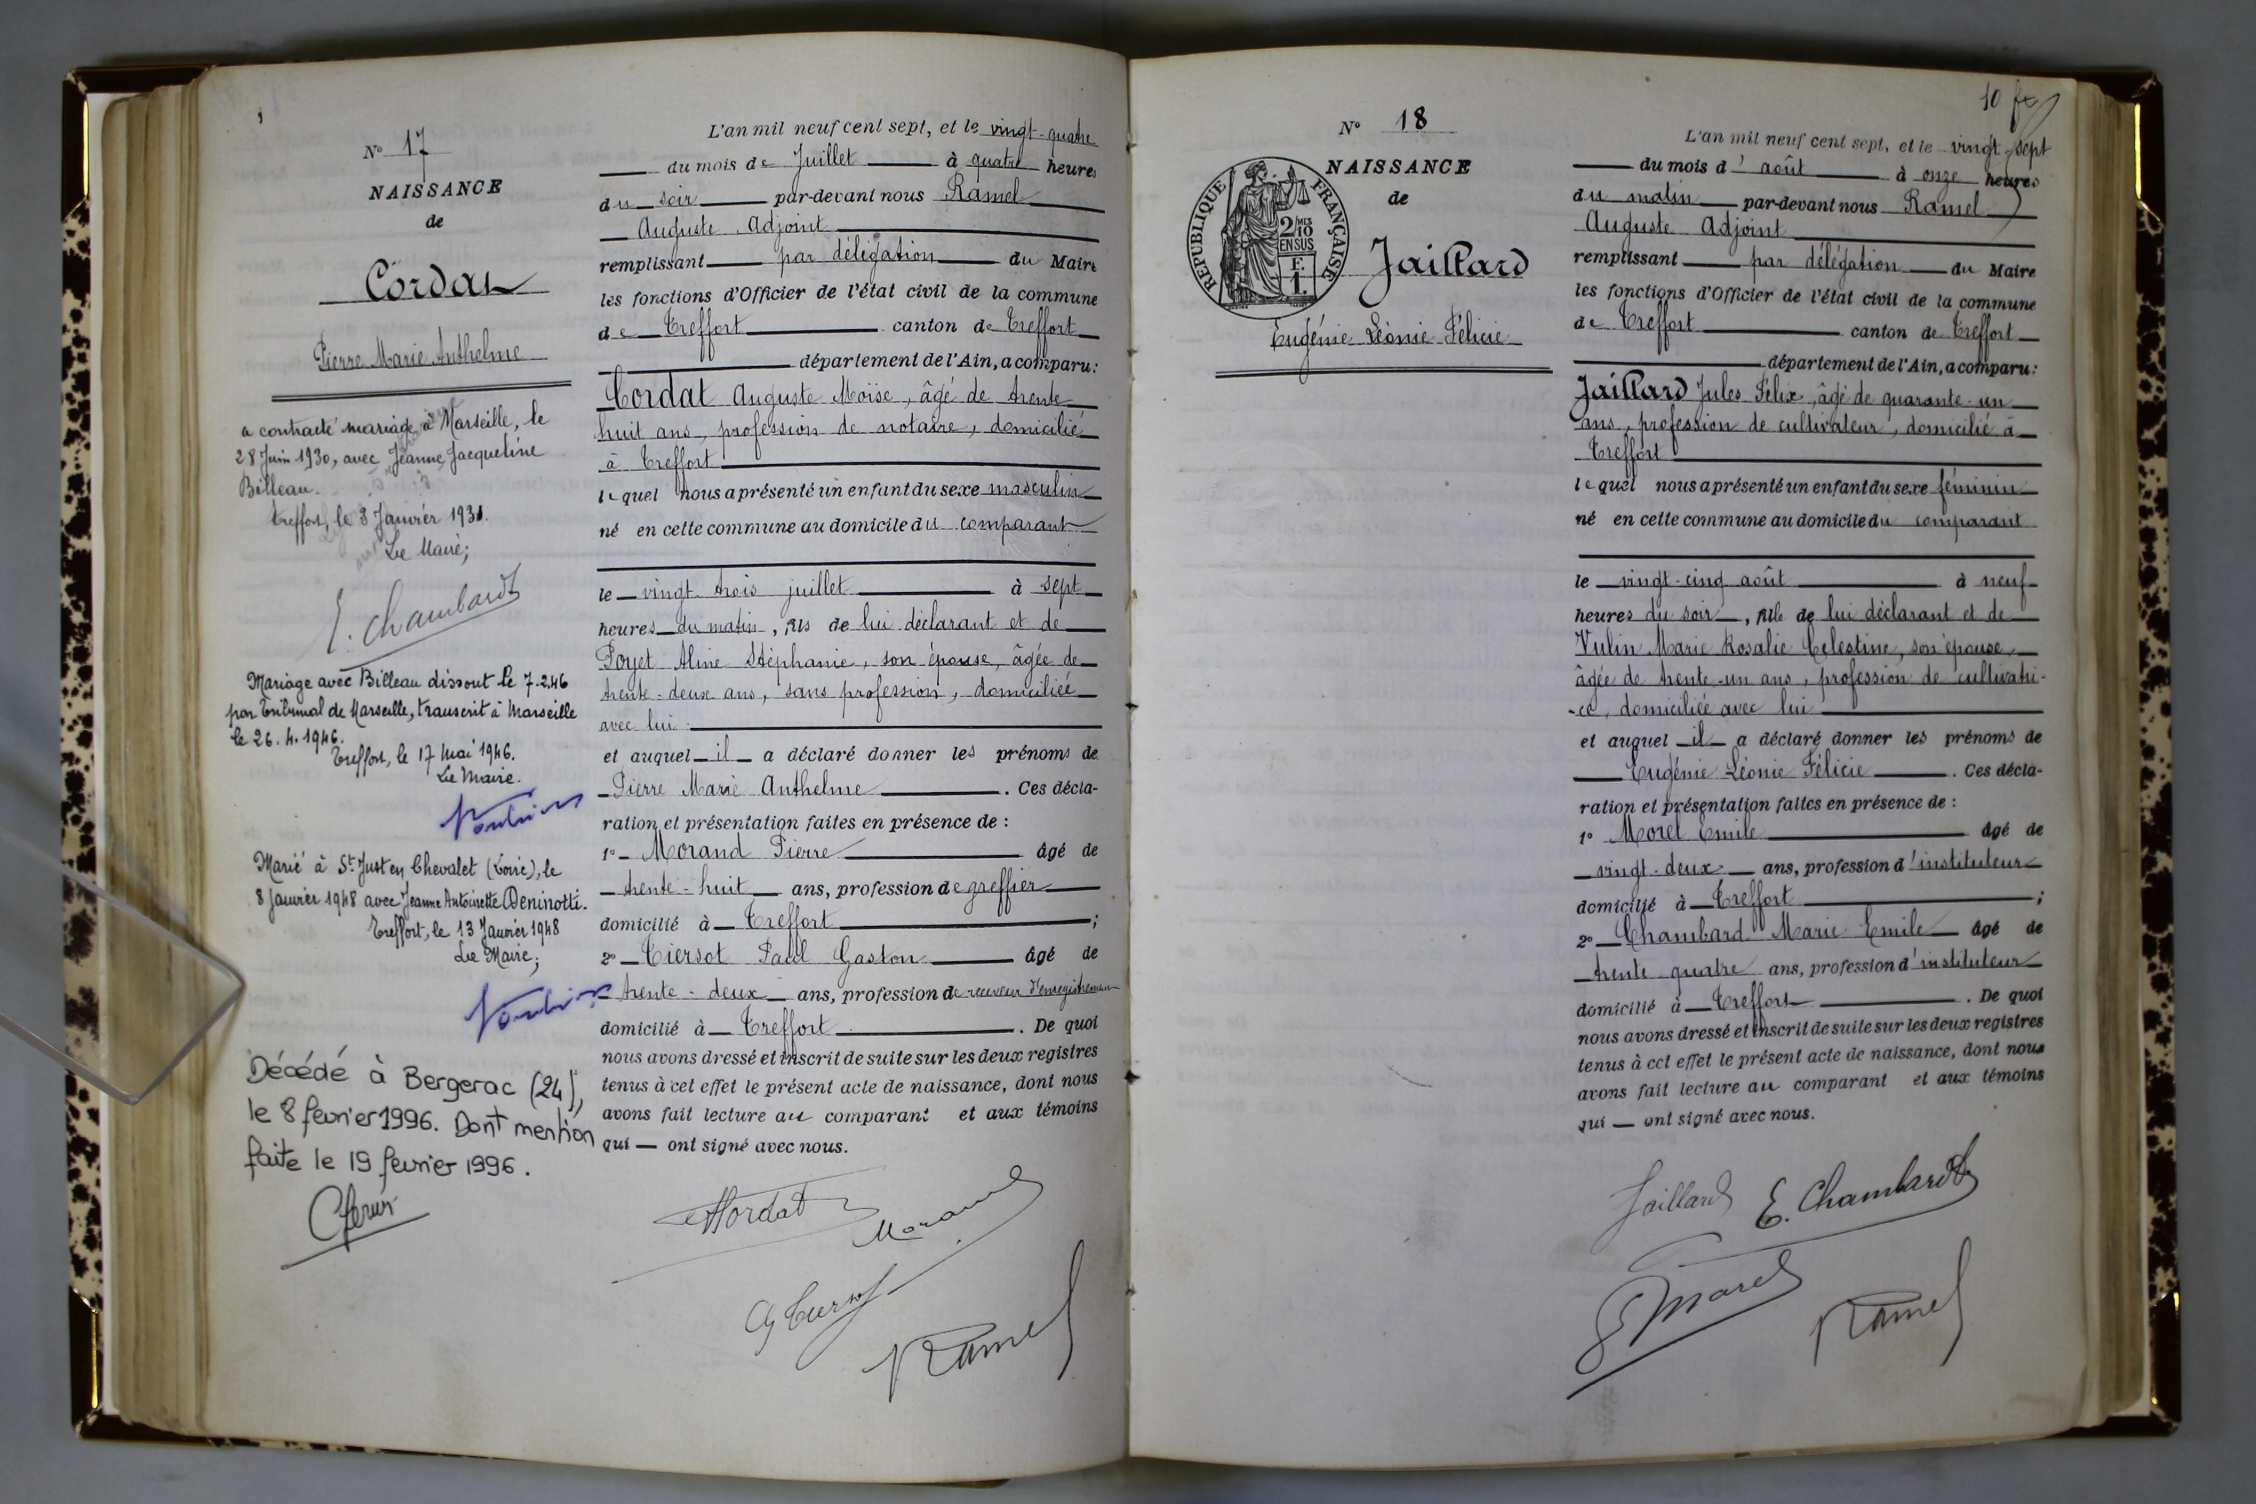 N° 17
NAISSANCE
de
Cordat
Pierre Marie Anthelme
a contracté mariage à Marseille, le
28 Juin 1930, avec Jeanne Jacqueline
Billeau.
Treffort, le 3 Janvier 1931.
Le Maire;
E. Chambard
Mariage avec Billeau dissout le 7.2.46
par Tribunal de Marseille, transcrit à Marseille
le 26.4.1946.
Treffort, le 17 Mai 1946.
Le Maire.
Marié à St Just en Chevalet (Loire), le
8 Janvier 1948 avec Jeanne Antoinette Deninotti.
Treffort, le 13 Janvier 1948
Le Maire;
Décédé à Bergerac (24),
le 8 février 1996. Dont mention
faite le 19 février 1996.
L'an mil neuf cent sept, et le vingt-quatre
du mois de Juillet à quatre heures
du soir par-devant nous Ramel
Auguste Adjoint
remplissant par délégation du Maire
les fonctions d'Officier de l'état civil de la commune
de Treffort canton de Treffort
département de l'Ain, a comparu:
Cordat Auguste Moïse, âgé de trente
huit ans, profession de notaire, domicilié
à Treffort
lequel nous a présenté un enfant du sexe masculin
né en cette commune au domicile du comparant
le vingt trois juillet à sept
heures du matin, fils de lui déclarant et de
Poyet Aline Stéphanie, son épouse, âgée de
trente-deux ans, sans profession, domiciliée
avec lui
et auquel il a déclaré donner les prénoms de
Pierre Marie Anthelme. Ces décla-
ration et présentation faites en présence de :
1° Morand Pierre âgé de
trente-huit ans, profession de greffier
domicilié à Treffort ;
2° Tiersot Paul Gaston âgé de
trente-deux ans, profession de receveur d'enregistrement
domicilié à Treffort. De quoi
nous avons dressé et inscrit de suite sur les deux registres
tenus à cet effet le présent acte de naissance, dont nous
avons fait lecture au comparant et aux témoins
qui ont signé avec nous.
Cordat
Morand
G Tiersot
Ramel
10 fx
N° 18
NAISSANCE
de
REPUBLIQUE FRANÇAISE
2 MES
10
EN SUS
F.
1.
Jaillard
Eugénie Léonie Félicie
L'an mil neuf cent sept, et le vingt sept
du mois d'août à onze heures
du matin par-devant nous Ramel
Auguste Adjoint
remplissant par délégation du Maire
les fonctions d'Officier de l'état civil de la commune
de Treffort canton de Treffort
département de l'Ain, a comparu:
Jaillard Jules Félix, âgé de quarante-un
ans, profession de cultivateur, domicilié à
Treffort
lequel nous a présenté un enfant du sexe féminin
né en cette commune au domicile du comparant
le vingt-cinq août à neuf
heures du soir, fille de lui déclarant et de
Vulin Marie Rosalie Célestine, son épouse,
âgée de trente-un ans, profession de cultivatri-
-ce, domiciliée avec lui
et auquel il a déclaré donner les prénoms de
Eugénie Léonie Félicie. Ces décla-
ration et présentation faites en présence de :
1° Morel Emile âgé de
vingt-deux ans, profession d'instituteur
domicilié à Treffort ;
2° Chambard Marie Emile âgé de
trente quatre ans, profession d'instituteur
domicilié à Treffort. De quoi
nous avons dressé et inscrit de suite sur les deux registres
tenus à cet effet le présent acte de naissance, dont nous
avons fait lecture au comparant et aux témoins
qui ont signé avec nous.
Jaillard
E. Chambard
E Morel
Ramel